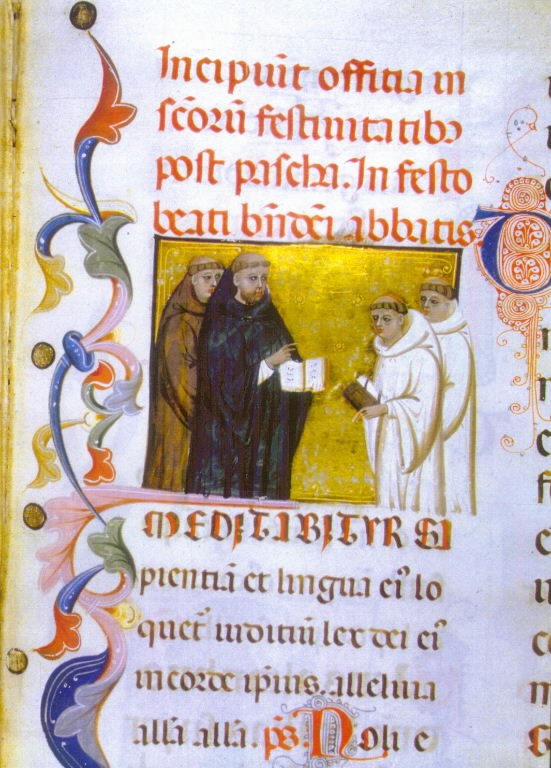 Incipiu̅t offitia in
sc̅oru̅ festiuitatibꝫ
post pascha. In festo
beati bn̅dc̅i abbatis
MEDITABITVR SA
pientia̅ et lingua ei᾽ lo
quet᾽ iuditiu̅ lex dei ei᾽
in corde ip̅ius. alleluia
all̅a all̅a. p̅s. Noli e